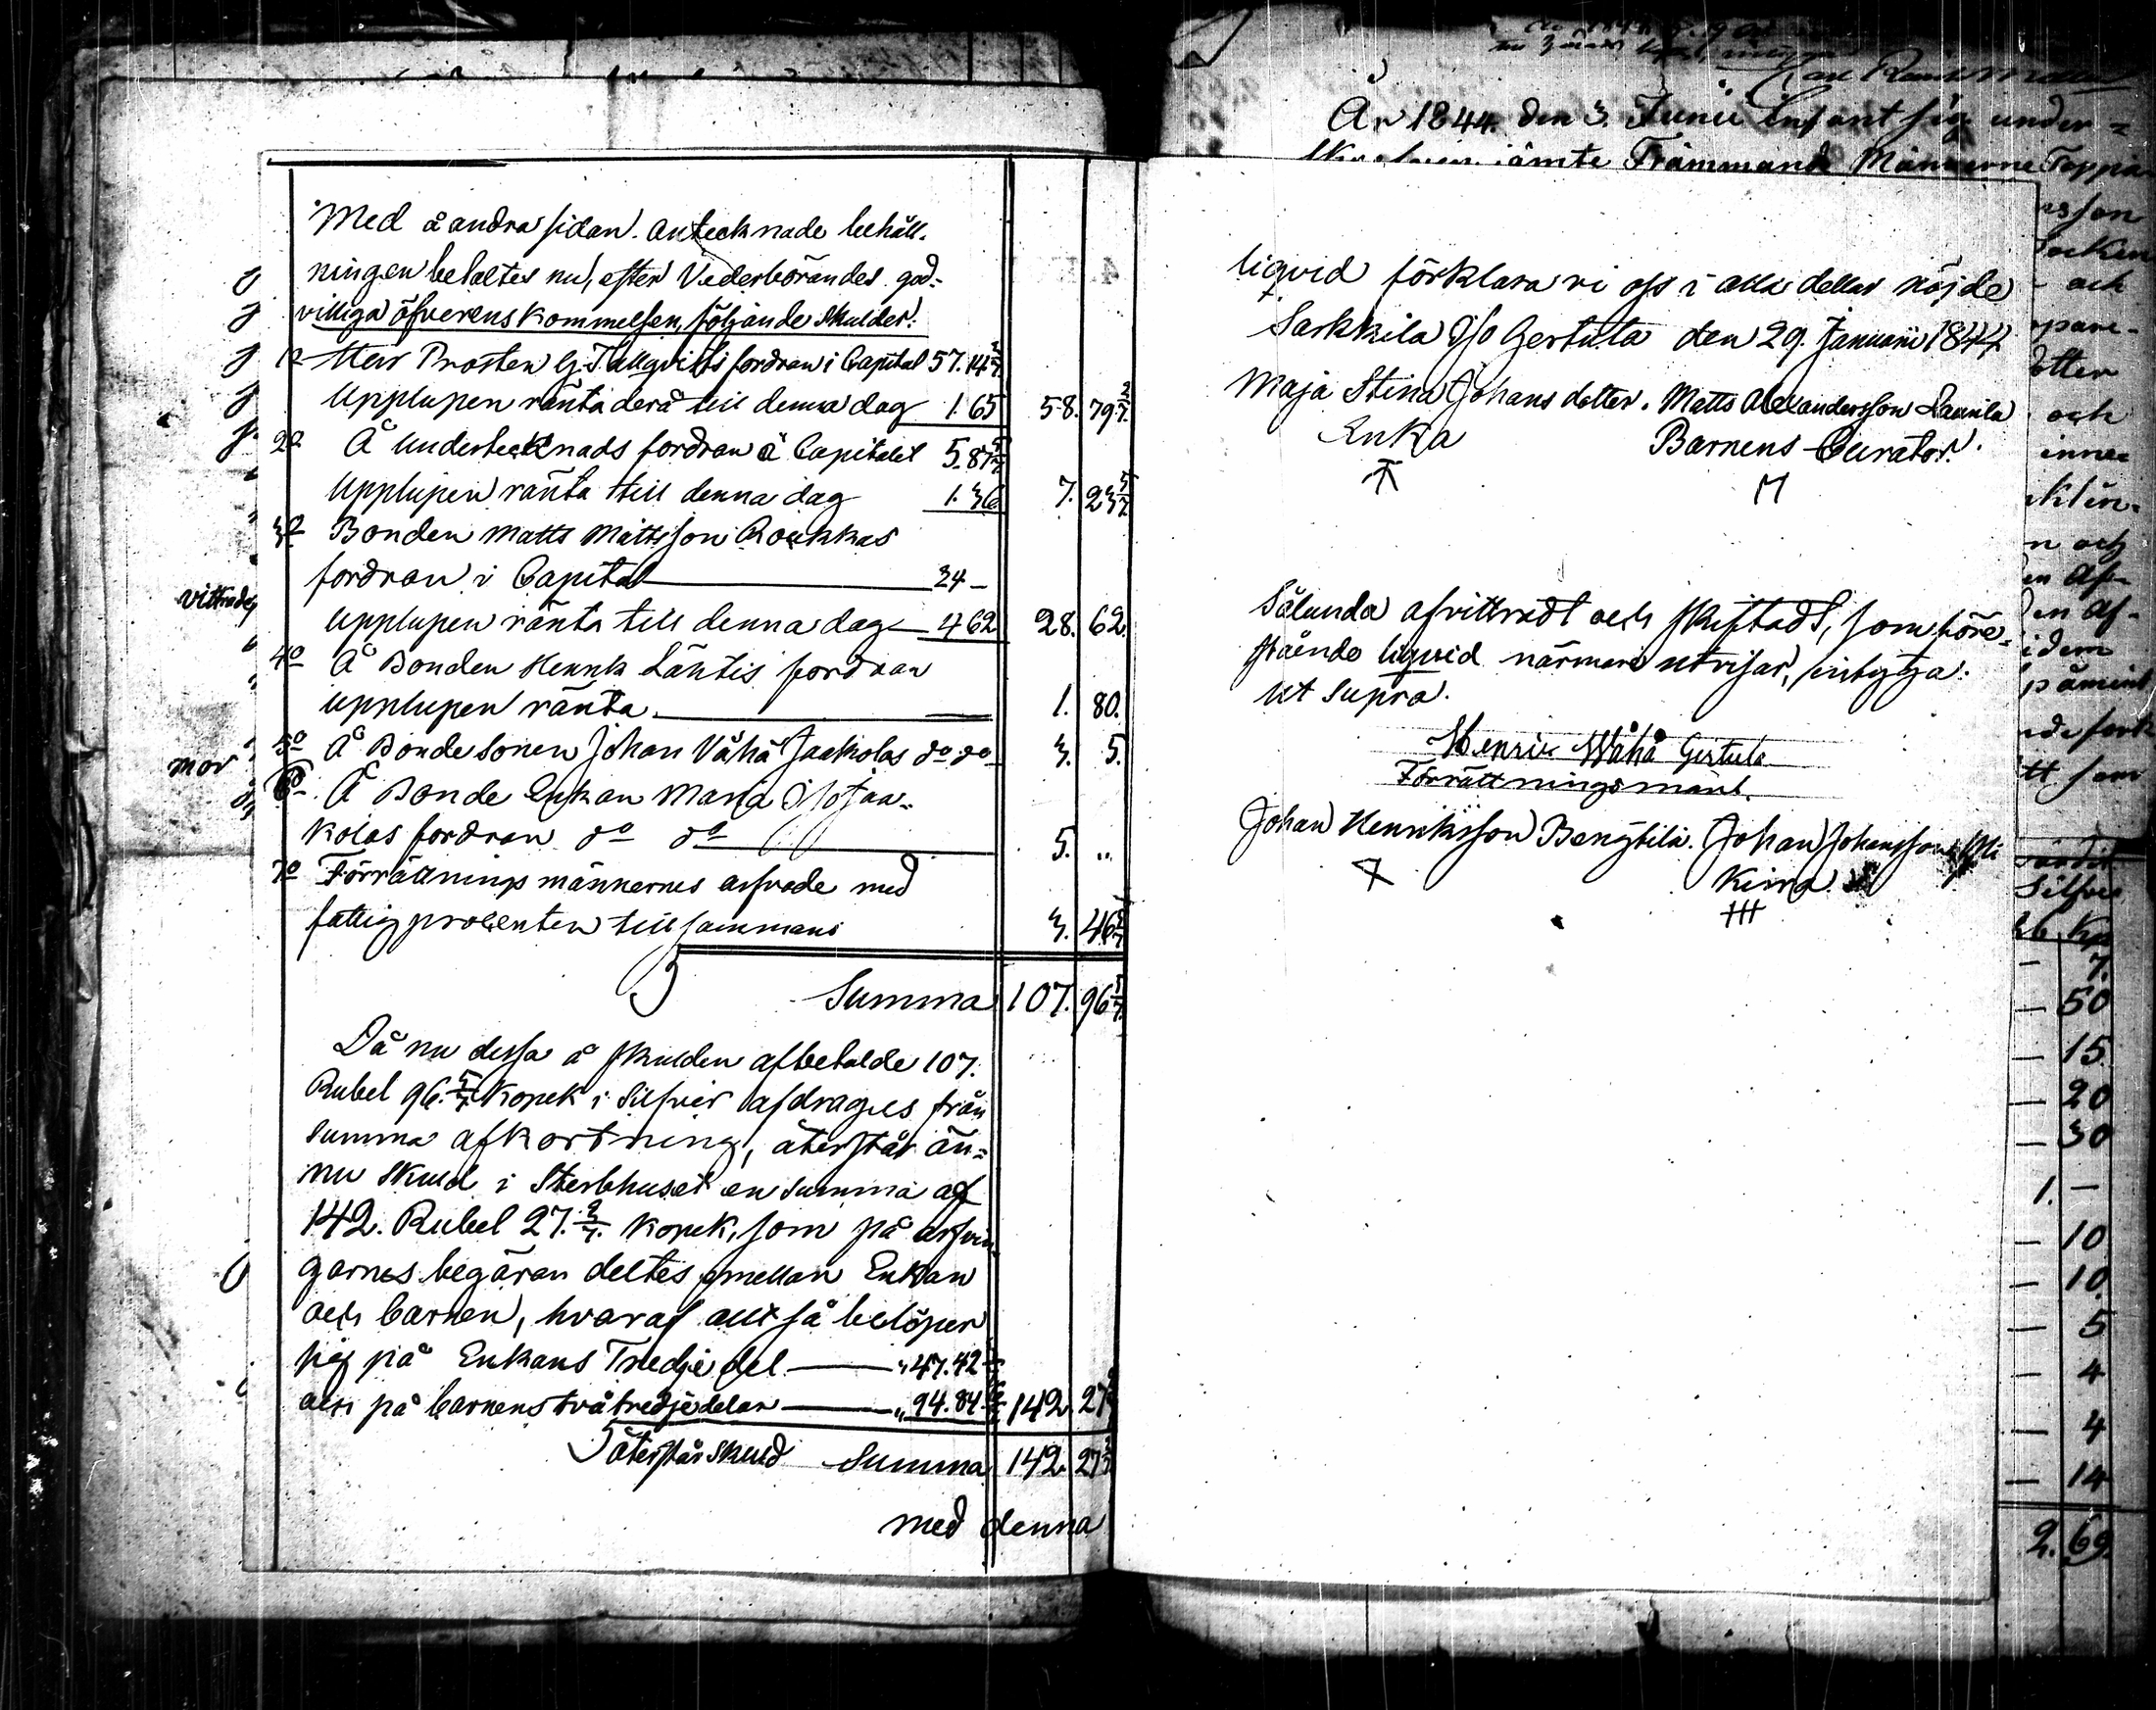 Med å andra sidan antecknade behåll-
ningen betaltes nu, efter Vederbörandes god-
villiga öfverenskommelsen, följande skulder:
1o Herr Prosten G. Tallqvists fordran i Capital 57.14 2/7
Upplupen ränta derå till denna dag 1.65 58. 79 2/7.
2o Å Undertecknads fordran å Capitalet 5.87 5/7
Upplupen ränta till denna dag 1.36 7. 23 5/7.
3o Bonden Matts Mattsson Roukkas
fordran i Capital 24 —
Upplupen ränta till denna dag 4 62 28. 62.
4o Å Bonden Henrik Lähtis fordran
upplupen ränta. 1. 80.
5o Å Bonde Sonen Johan Vähä Jaakolas do do 3. 5.
6o Å Bonde Enkan Maria Iso Jaa-
kolas fordran do do 5. "
7o Förrättnings männernes arfvode med
fattigprocenten till sammans 3. 46 5/7
Summa 107. 96 5/7.
Då nu dessa å skulden afbetalde 107.
Rubel 96. 5/7. Kopek i Silfver afdrages från
Summa afkortning, återstår än-
nu skuld i Sterbhuset en summa af
142. Rubel 27. 2/7. Kopek, som på arfvin-
garnes begäran deltes emellan Enkan
och barnen, hvaraf allt så belöper
sig på Enkans Tredje del " 47.42
och på barnens två tredjedelar " 94.84 142. 27
återstår skuld Summa 142. 27 2/7
med denna
vittrade
mor
År 1844 den 3. Junii infant sig under=
jämte Främmande Männerne Toppia
liqvid förklara vi oss i alla dellar nöjde
Sarkkila Iso Gertula den 29. Januarii 1844
Maja Stina Johans dotter. Matts Alexandersson Launila
Enka Barnens Curator.
Sålunda afvittradt och skiftadt, som före-
stående liqvid närmare utvisar, intyga:
Ut Supra.
Henric Wähä Gertula
Förrättningsmänl.
Johan Henriksson Bengtila. Johan Johansson
Kirra
sson
Socken
och
dotter
och
inne
n och
påmint
tt som
Silfver
Kp
7.
50
15
20
30
1. —
10
10.
5
4
4
14
2. 69.